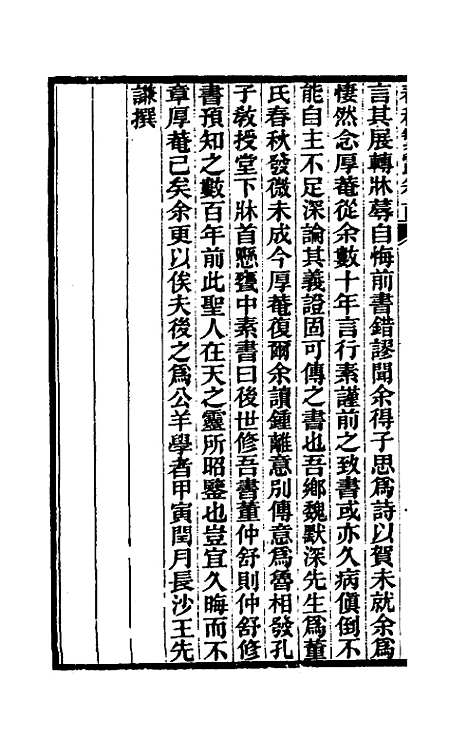 言其展轉牀蓐自悔前書錯謬聞余得子思爲詩以賀未就余爲
悽然念厚菴從余數十年言行素謹前之致書或亦久病傎倒不
能自主不足深論其義證固可傳之書也吾鄉魏默深先生爲董
氏春秋發微未成今厚菴復爾余讀鍾離意別傳意爲魯相發孔
子敎授堂下牀首懸甕中素書曰後世修吾書董仲舒則仲舒修
書預知之數百年前此聖人在天之靈所昭鑒也豈宜久晦而不
章厚菴已矣余更以俟夫後之爲公羊學者甲寅閏月長沙王先
謙撰